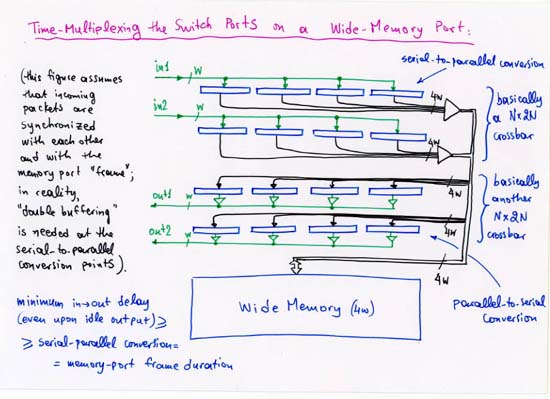 Time-Multiplexing the Switch Ports on a Wide-Memory Port:
(this figure assumes
that incoming
packets are
synchronized
with each other
and with the
memory port "frame";
in reality,
"double buffering"
is needed at the
serial-to-parallel
conversion points).
in1
w
serial-to-parallel conversion
4w
in2
w
4w
basically
a N×2N
crossbar
out1
w
4w
out2
w
4w
basically
another
N×2N
crossbar
4w
parallel-to-serial
conversion
Wide Memory (4w)
minimum in→out delay
(even upon idle output) ≥
≥ serial-parallel conversion=
= memory-port frame duration